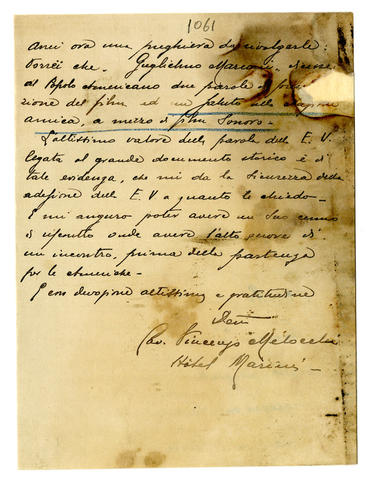 1061
Avrei ora una preghiera da rivolgerle:
Vorrei che Guglielmo Marconi
al Popolo Americano due parole di
zione del film ed un saluto alla
amica, a mezzo di film Sonoro -
L'altissimo valore della parola dell' E. V.
legata al grande documento storico è di
tale evidenza, che mi da la sicurezza della
adesione dell' E. V. a quanto le chiedo -
E mi auguro poter avere un Suo cenno
di riscontro onde avere l'alto onore di
un incontro prima della partenza
per le Americhe -
E con devozione altissima e gratitudine
Cav. Vincenzo Melocchi
Hôtel Marini -